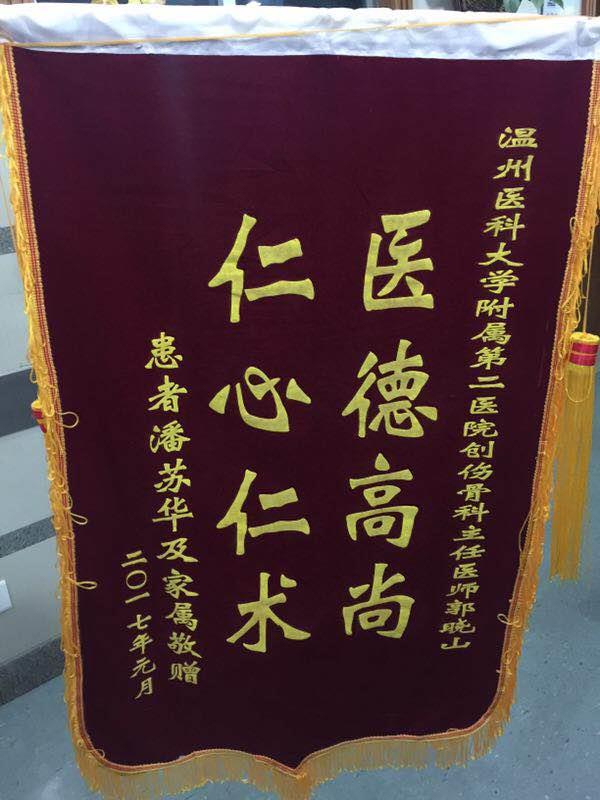 温州医科大学附属第二医院创伤骨科主任医师郭晓山
医德高尚
仁心仁术
患者潘苏华及家属敬赠
二〇一七年元月